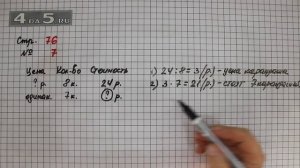 4 ДА 5.RU
Стр. 76
№ 7
Цена Кол-во Стоимость
? р. 8 к. 24 р.
одинак. 7 к. ? р.
1) 24 : 8 = 3 (р.) - цена карандаша
2) 3 · 7 = 21 (р.) - стоят 7 карандашей